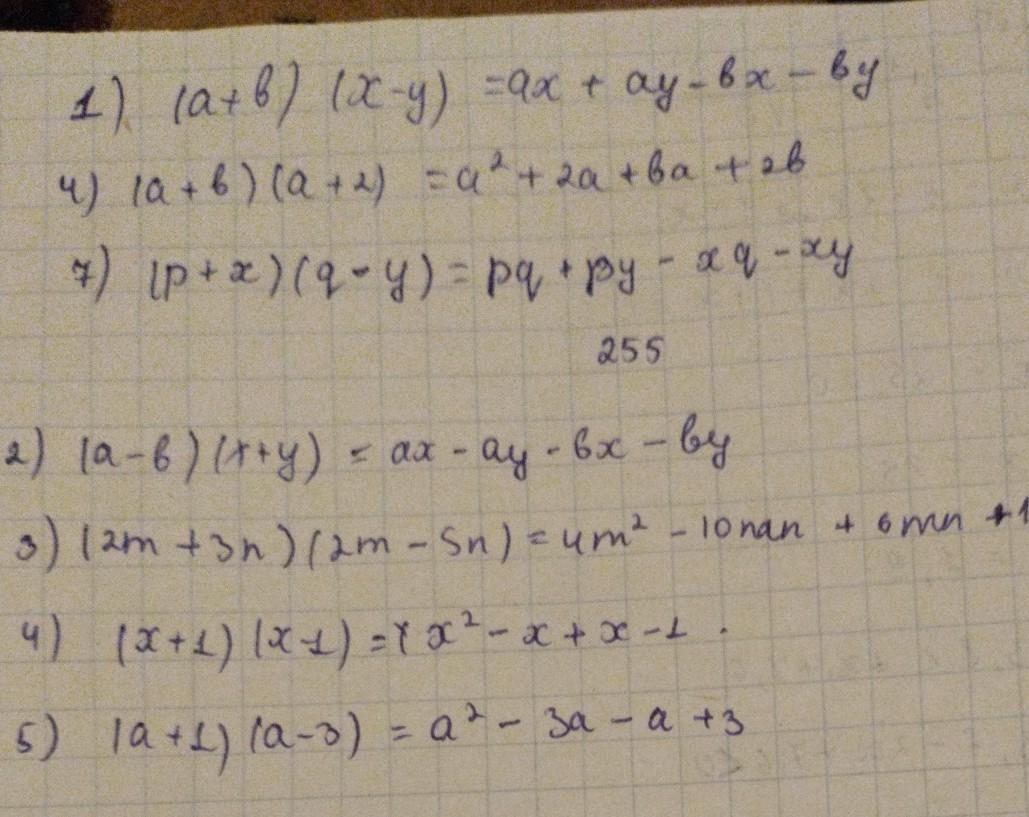 1) (a+b) (x-y) =ax + ay - bx - by
4) (a+b)(a+2) =a² + 2a + ba + 2b
7) (p+x)(q-y) = pq + py - xq - xy
255
2) (a-b)(x+y) = ax - ay - bx - by
3) (2m+3n)(2m-5n) = 4m² - 10mn + 6mn + 1
4) (x+1)(x-1) = x² - x + x - 1 .
5) (a+1)(a-3) = a² - 3a - a + 3